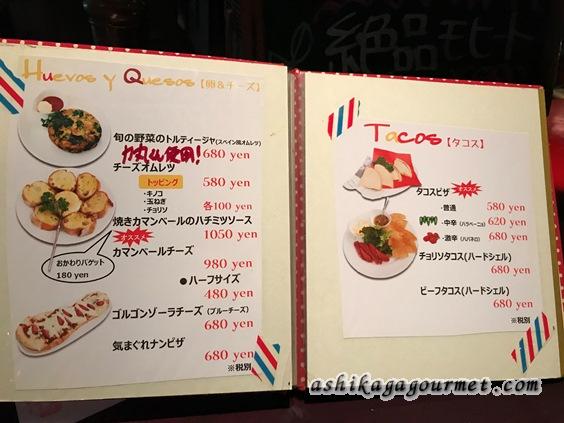 絶品モヒート
Huevos y Quesos【卵&チーズ】
旬の野菜のトルティージャ(スペイン風オムレツ)
使用! 680 yen
チーズオムレツ
トッピング 580 yen
・キノコ
・玉ねぎ 各100 yen
・チョリソ
焼きカマンベールのハチミツソース
オススメ 1050 yen
カマンベールチーズ
おかわりバゲット 980 yen
180 yen
●ハーフサイズ
480 yen
ゴルゴンゾーラチーズ(ブルーチーズ)
680 yen
気まぐれナンピザ
680 yen
※税別
Tacos【タコス】
タコスピザ オススメ
・普通 580 yen
・中辛(ハラペーニョ) 620 yen
・激辛(ハバネロ) 680 yen
チョリソタコス(ハードシェル)
680 yen
ビーフタコス(ハードシェル)
680 yen
※税別
ashikagagourmet.com